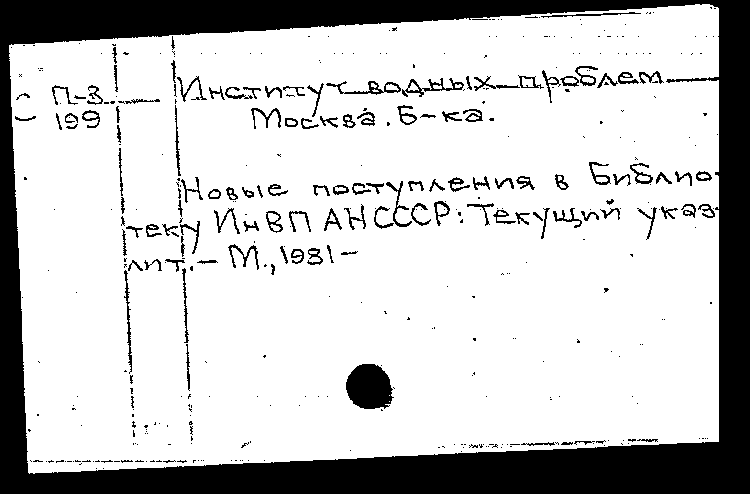 П-3 Институт водных проблем
199 Москва. Б-ка.
Новые поступления в Библио-
теку ИнВП АН СССР: Текущий указ.
лит. – М., 1981 –